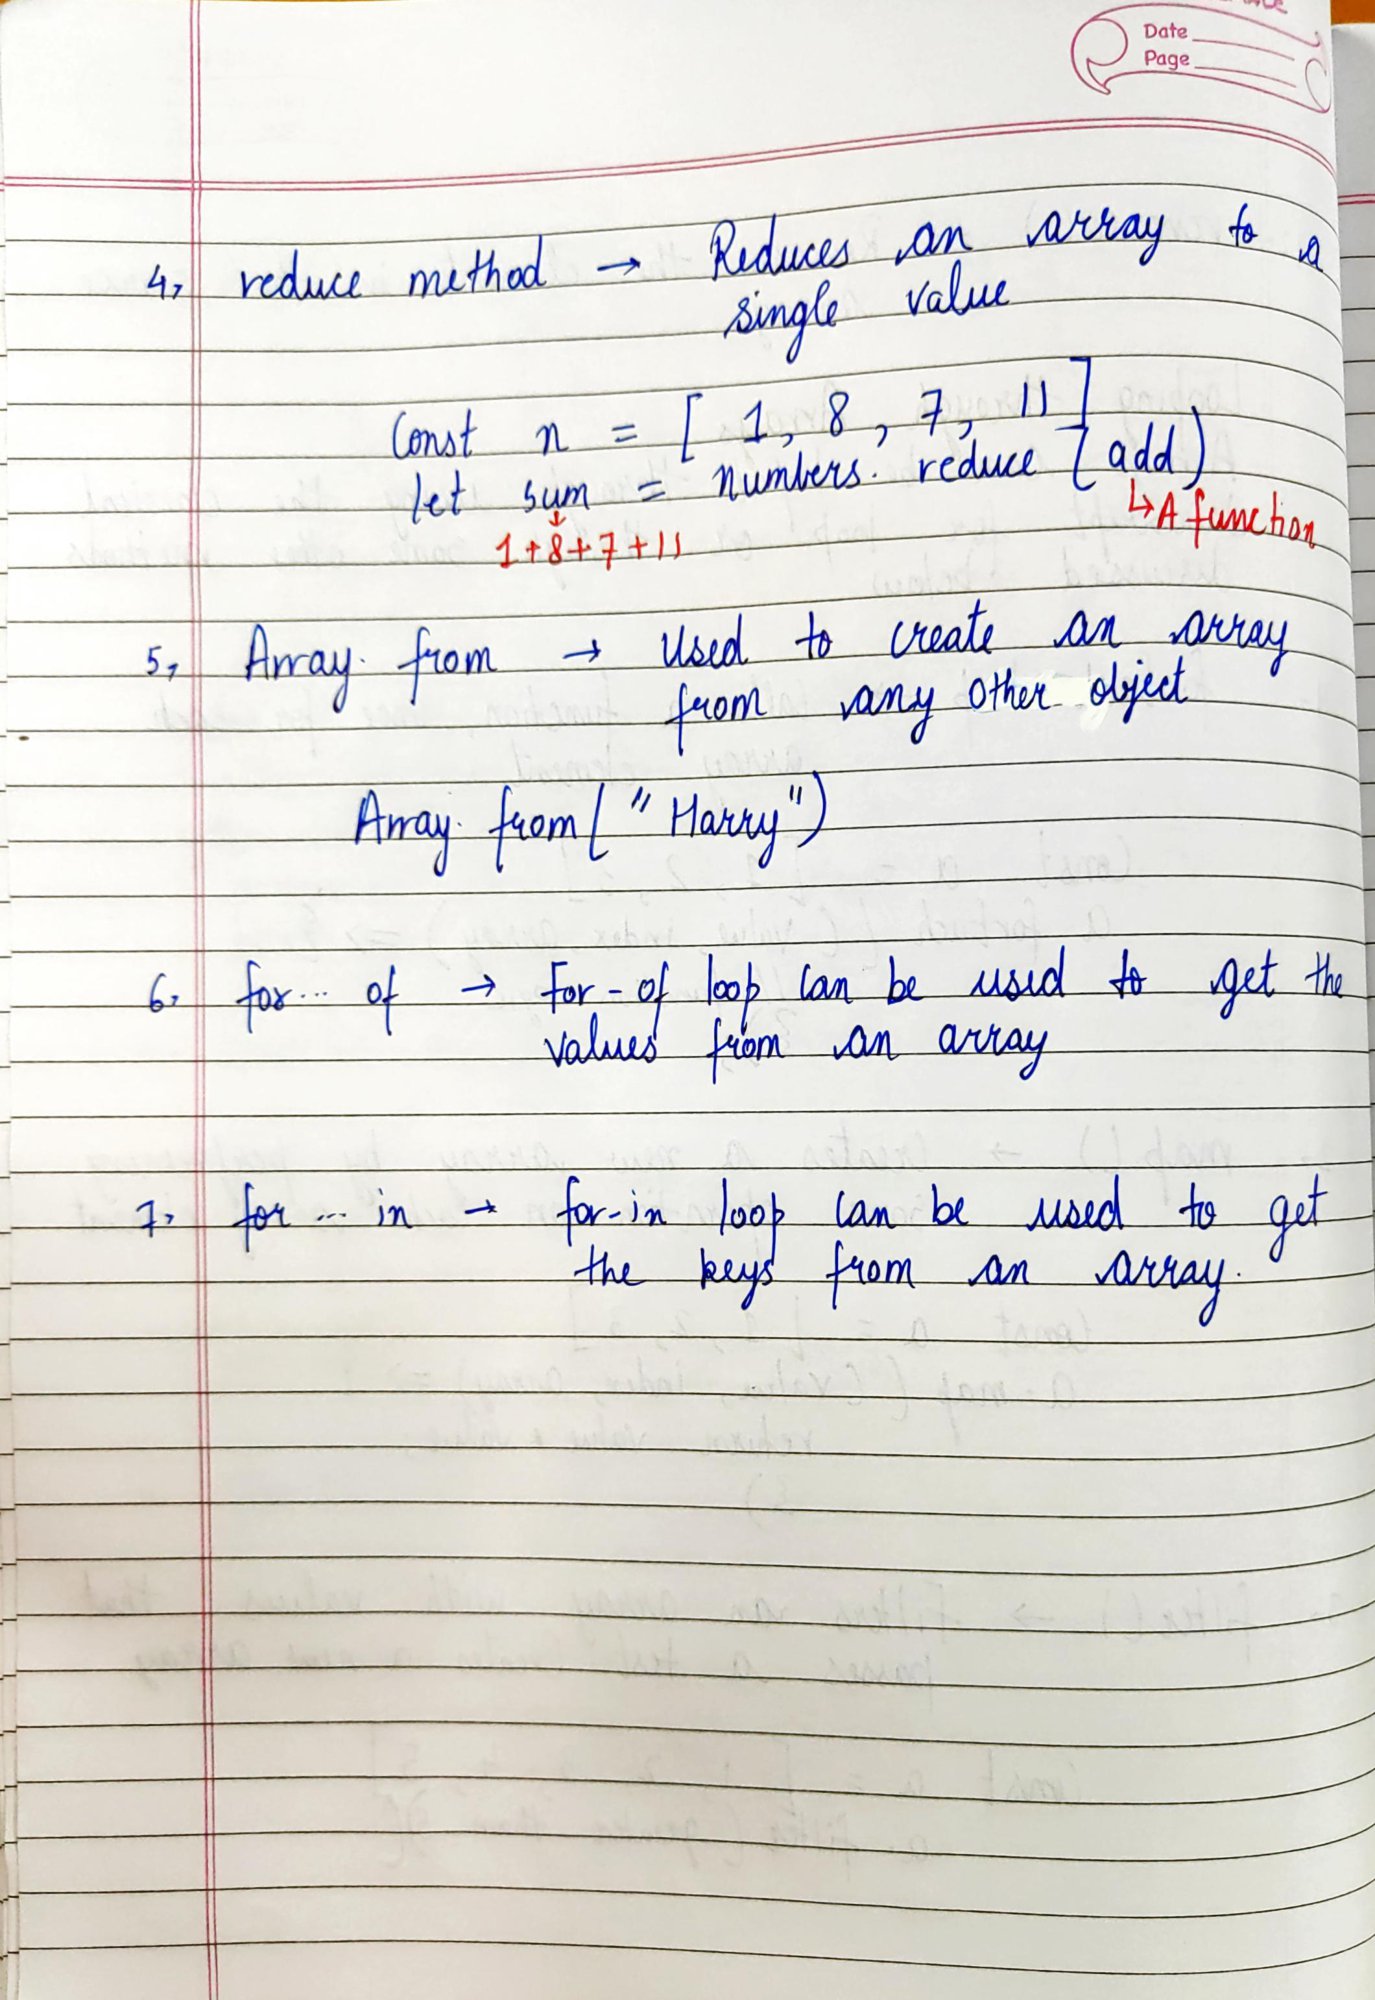 Date
Page
4, reduce method → Reduces an array to a
single value
Const n = [ 1, 8, 7, 11 ]
let sum = numbers. reduce (add)
↳ A function
↓
1+8+7+11
5, Array. from → Used to create an array
from any other object
Array. from ( "Harry")
6, for... of → For-of loop can be used to get the
values from an array
7, for ... in → for-in loop can be used to get
the keys from an array.